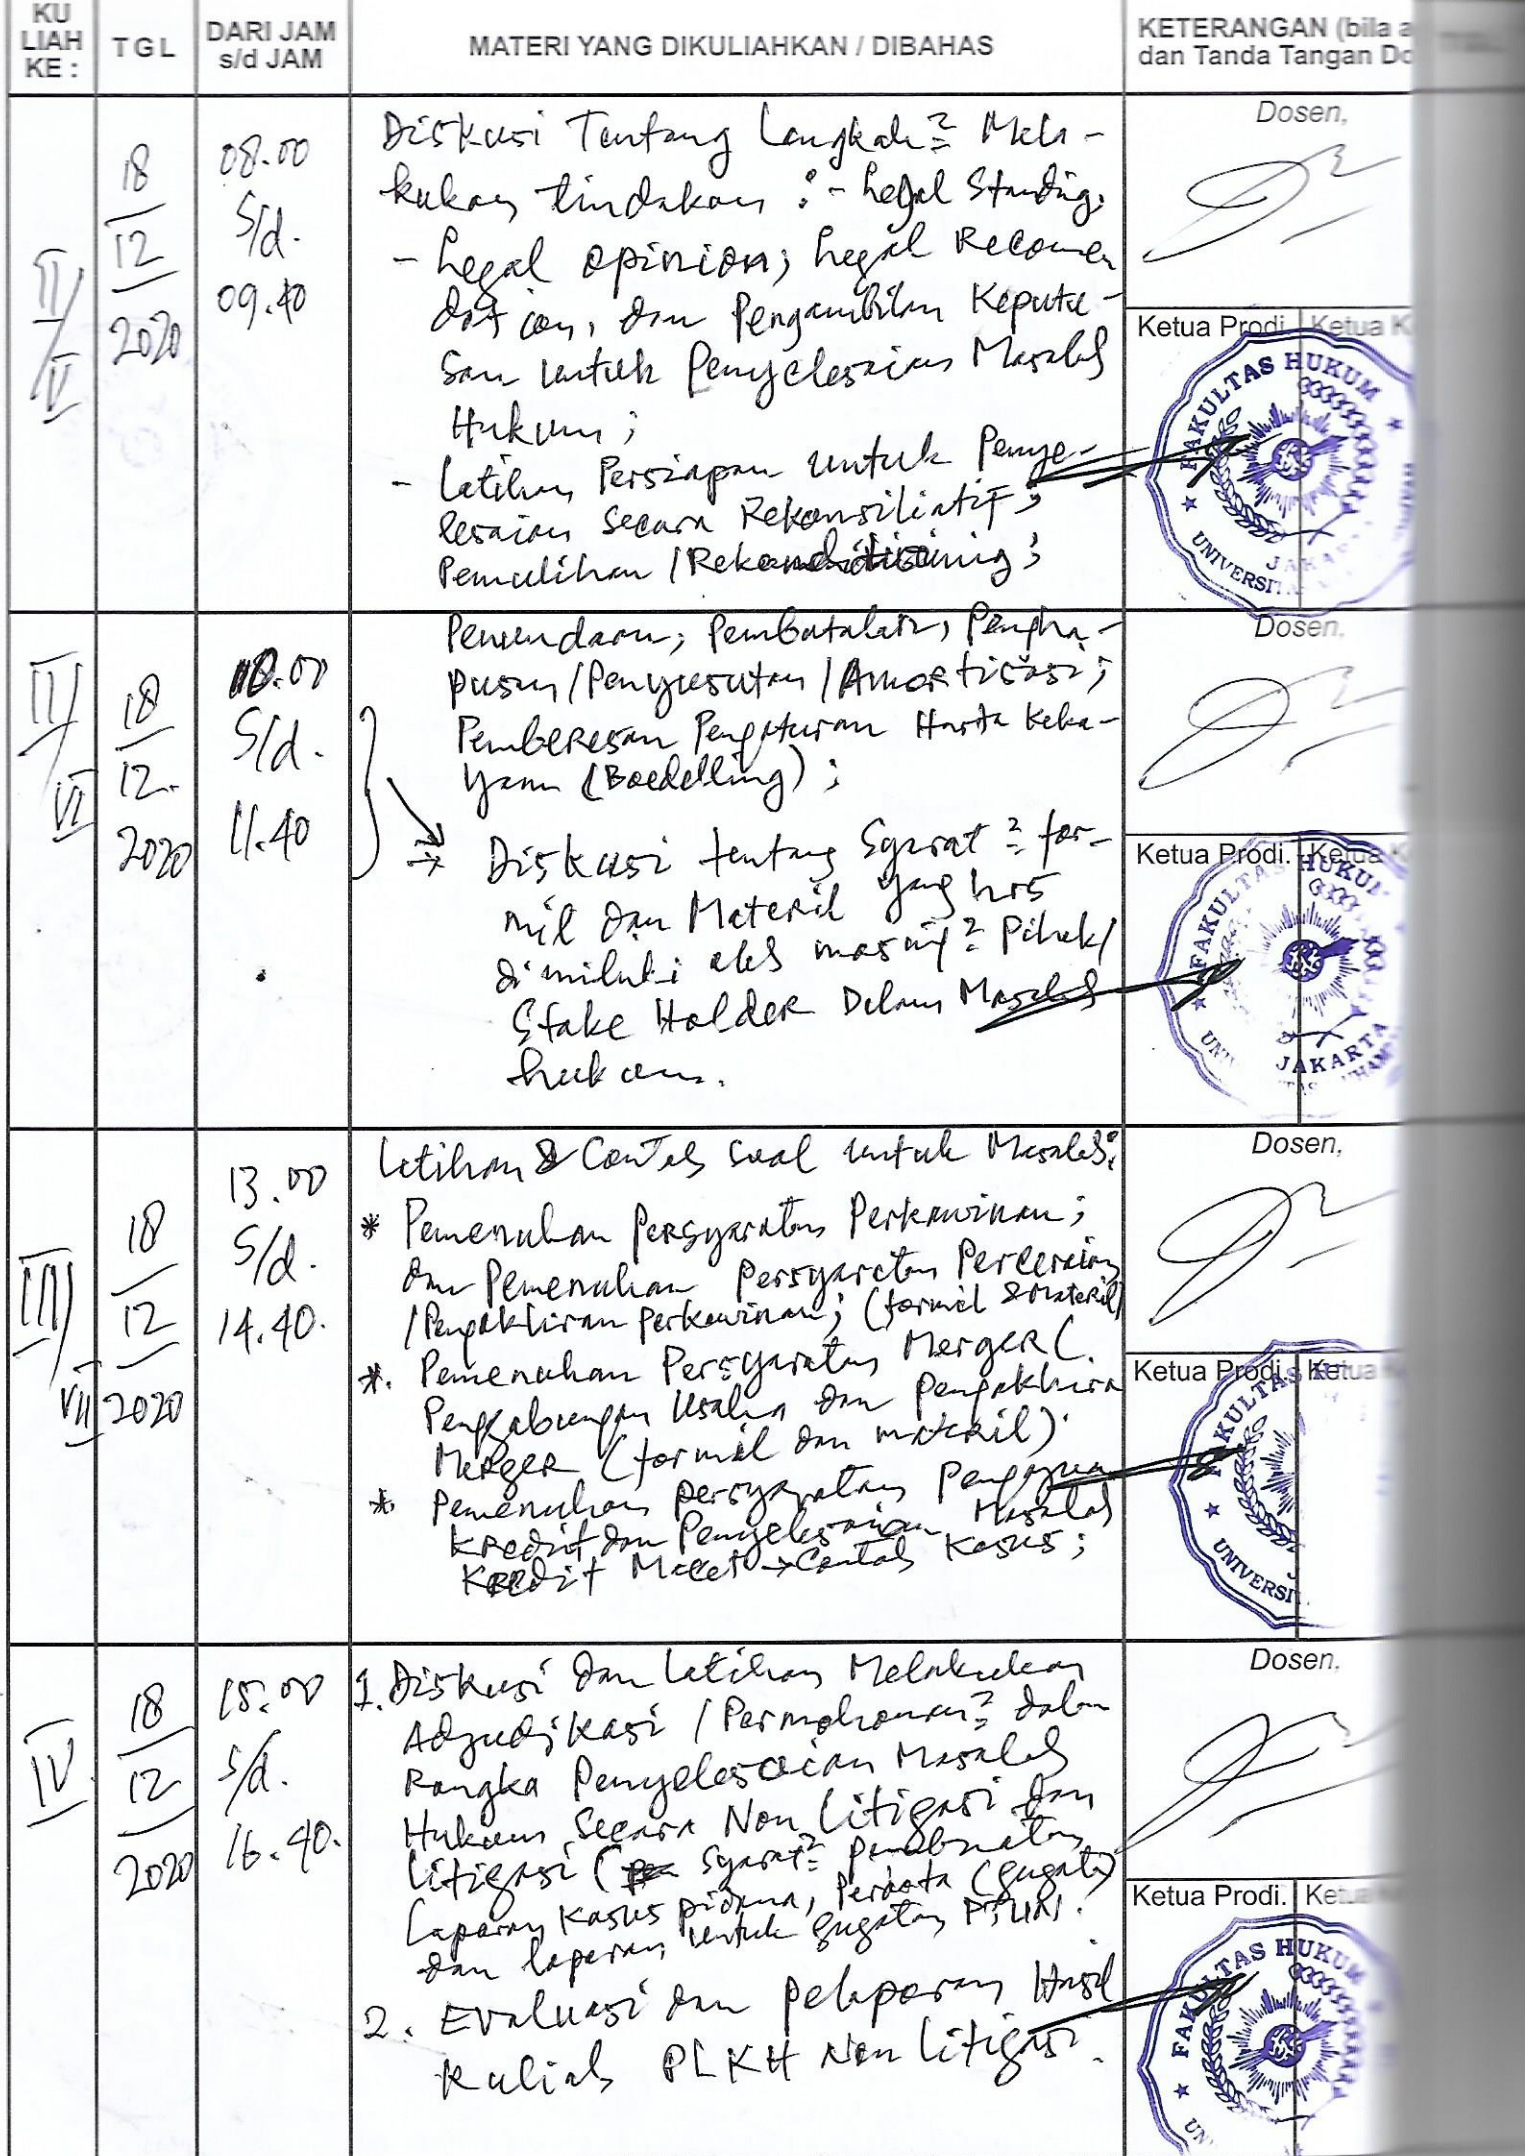 KU
LIAH
KE :
TGL
DARI JAM
s/d JAM
MATERI YANG DIKULIAHKAN / DIBAHAS
KETERANGAN (bila a
dan Tanda Tangan Do
II/V
18
12
2020
08.00
s/d.
09.40
Diskusi Tentang Langkah² Mela-
kukan tindakan : - Legal Standing;
- Legal opinion; Legal Recomen
dation, dan Pengambilan Keputu-
san untuk Penyelesaian Masalah
Hukum ;
- Latihan Persiapan untuk Penye-
lesaian secara Rekonsiliatif;
Pemulihan / Rekondisioning ;
Dosen,
Ketua Prodi. Ketua K
FAKULTAS HUKUM
UNIVERSIT
JAKA
II/VI
18
12.
2020
10.00
s/d.
11.40
Penundaan; Pembatalan, Pengha-
pusan / Penyusutan / Amortisasi;
Pemberesan Pengaturan Harta Keka-
yaan (Boedelling) ;
Diskusi tentang Syarat² for-
mil dan Materil yang hrs
dimiliki oleh masing² Pihak/
Stake Holder Dalam Masalah
hukum.
Dosen,
Ketua Prodi. Ketua K
FAKULTAS HUKU
JAKARTA
III/VII
18
12
2020
13.00
s/d.
14.40.
Latihan & Contoh soal untuk Masalah:
* Pemenuhan Persyaratan Perkawinan ;
dan Pemenuhan Persyaratan Perceraian
/ Pengakhiran Perkawinan; (formil & Materil)
*. Pemenuhan Persyaratan Merger (.
Penggabungan Usaha dan Pengakhira
Merger (formil dan materil).
* Pemenuhan persyaratan Pengajuan
Kredit dan Penyelesaian Masalah
Kredit Macet → Contoh Kasus ;
Dosen,
Ketua Prodi. Ketua
FAKULTAS
UNIVERSI
IV
18
12
2020
15.00
s/d.
16.40.
1. Diskusi dan Latihan Melakukan
Adjudikasi / Permohonan² dalam
Rangka Penyelesaian Masalah
Hukum Secara Non Litigasi dan
Litigasi ( Syarat² pembuatan
Laporan Kasus pidana, Perdata (gugatan)
dan laporan untuk gugatan PTUN.
2. Evaluasi dan pelaporan Hasil
Kuliah PLKH Non Litigasi.
Dosen,
Ketua Prodi. Ketua
FAKULTAS HUKUM
UN